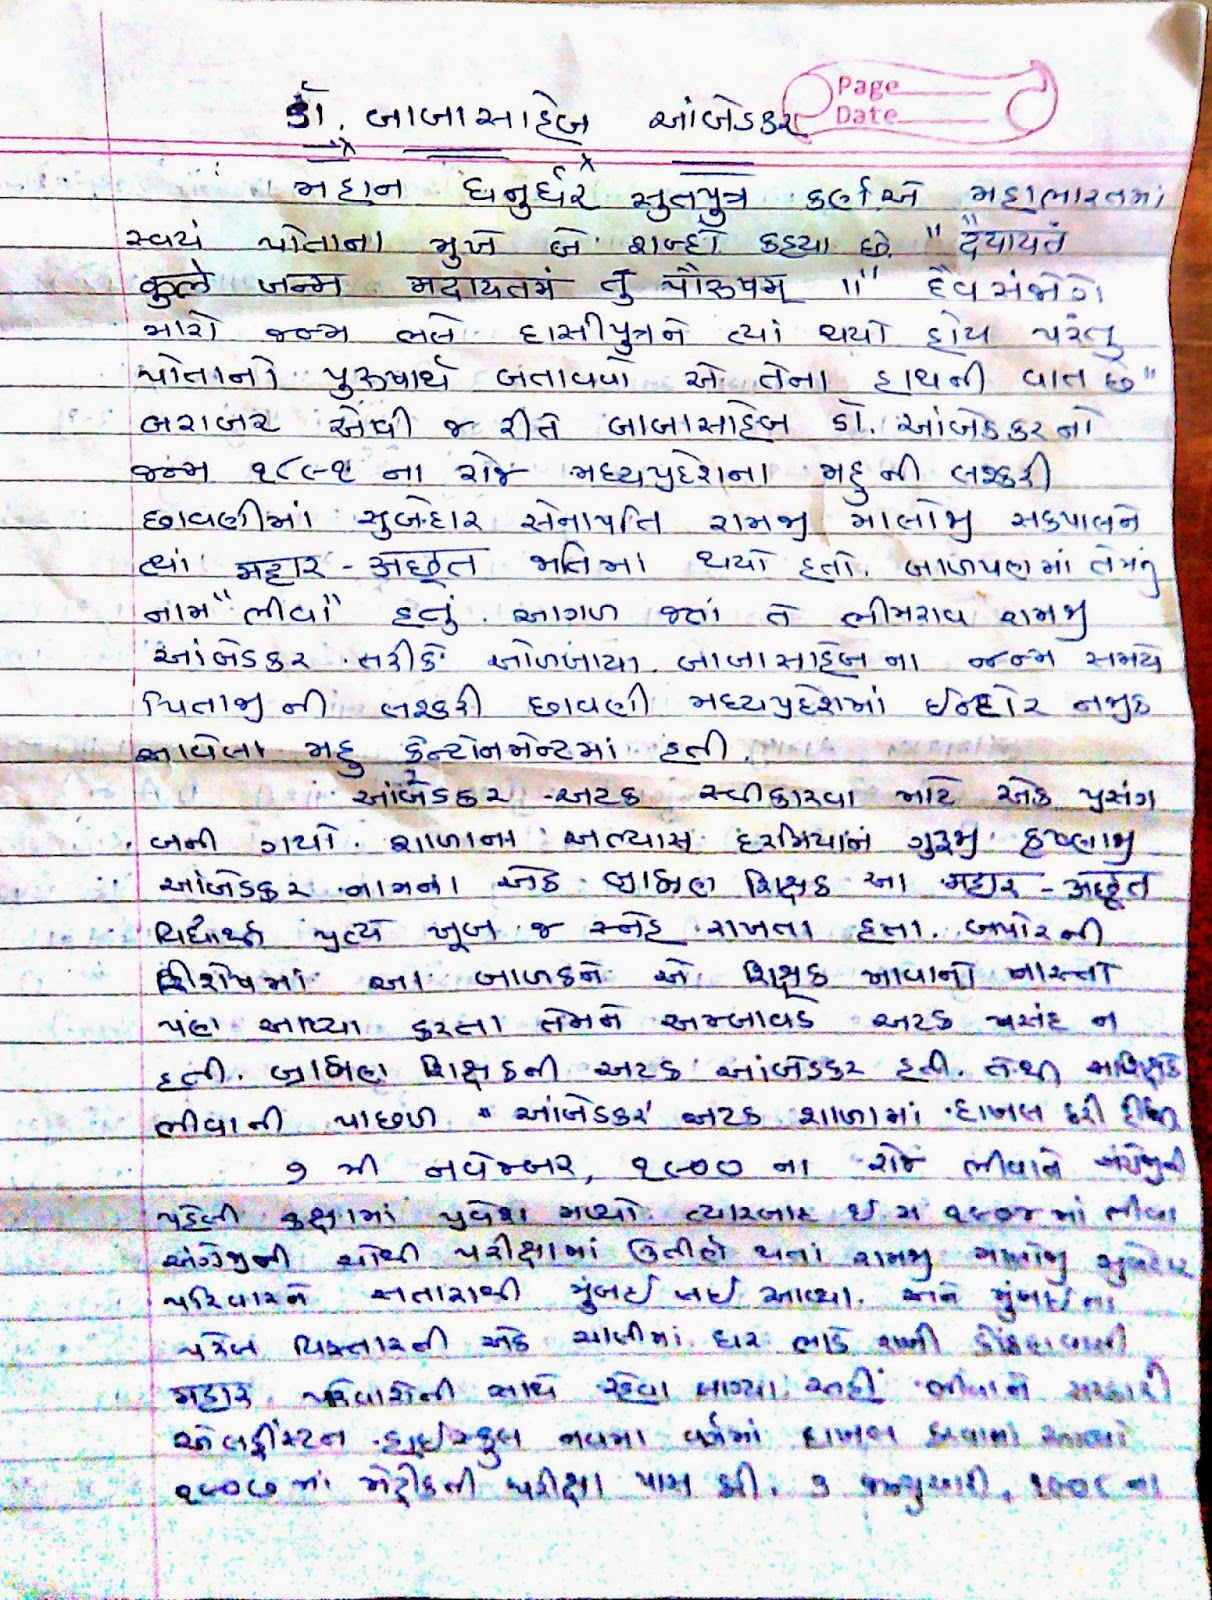 Page
Date
ડૉ. બાબાસાહેબ આંબેડકર
મહાન ધનુર્ધર સુતપુત્ર કર્ણએ મહાભારતમાં
સ્વયં પોતાના મુખે બે શબ્દો કહ્યા છે. " દૈયાયતં
કુલે જન્મ મદાયતમં તું પૌરુષમ્ ॥" દૈવ સંજોગે
મારો જન્મ ભલે દાસીપુત્રને ત્યાં થયો હોય પરંતુ
પોતાનો પુરુષાર્થ બતાવવો એ તેના હાથની વાત છે"
બરાબર એવી જ રીતે બાબાસાહેબ ડૉ. આંબેડકરનો
જન્મ ૧૮૯૧ ના રોજ મધ્યપ્રદેશના મહુની લશ્કરી
છાવણીમાં સુબેદાર સેનાપતિ રામજી માલોજી સકપાલને
ત્યાં મહાર - અછૂત જાતિમાં થયો હતો. બાળપણમાં તેમનું
નામ "ભીવા" હતું. આગળ જતાં તે ભીમરાવ રામજી
આંબેડકર તરીકે ઓળખાયા. બાબાસાહેબના જન્મ સમયે
પિતાજીની લશ્કરી છાવણી મધ્યપ્રદેશમાં ઈન્દોર નજીક
આવેલા મહુ કેન્ટોનમેન્ટમાં હતી.
આંબેડકર અટક સ્વીકારવા માટે એક પ્રસંગ
બની ગયો. શાળાના અભ્યાસ દરમિયાન ગુરૂજી કૃષ્ણાજી
આંબેડકર નામના એક બ્રાહ્મણ શિક્ષક આ મહાર - અછૂત
વિદ્યાર્થી પ્રત્યે ખૂબ જ સ્નેહ રાખતા હતા. બપોરની
રીશેષમાં આ બાળકને એ શિક્ષક ખાવાનો નાસ્તો
પણ આપ્યા કરતા તેમને અમ્બાવડે અટક પસંદ ન
હતી. બ્રાહ્મણ શિક્ષકની અટક આંબેડકર હતી. તેથી
ભીવાની પાછળ " આંબેડકર" અટક શાળામાં દાખલ કરી દીધી
૭ મી નવેમ્બર, ૧૯૦૦ ના રોજ ભીવાને અંગ્રેજીની
પહેલી કક્ષામાં પ્રવેશ મળ્યો. ત્યારબાદ ઈ.સ ૧૯૦૪ માં ભીવા
અંગ્રેજીની ચોથી પરીક્ષામાં ઉતીર્ણ થતાં રામજી માલોજી સુબેદાર
પરિવારને સતારાથી મુંબઈ લઈ આવ્યા. અને મુંબઈના
પરેલ વિસ્તારની એક ચાલીમાં ઘર ભાડે રાખી
મહાર પરિવારોની સાથે રહેવા લાગ્યા. અહીં ભીવાને સરકારી
એલફીંસ્ટન હાઈસ્કુલ વર્ગમાં દાખલ કરવામાં આવ્યો
૧૯૦૭માં મેટ્રીકની પરીક્ષા પાસ કરી. ૩ જાન્યુઆરી, ૧૯૦૮ ના